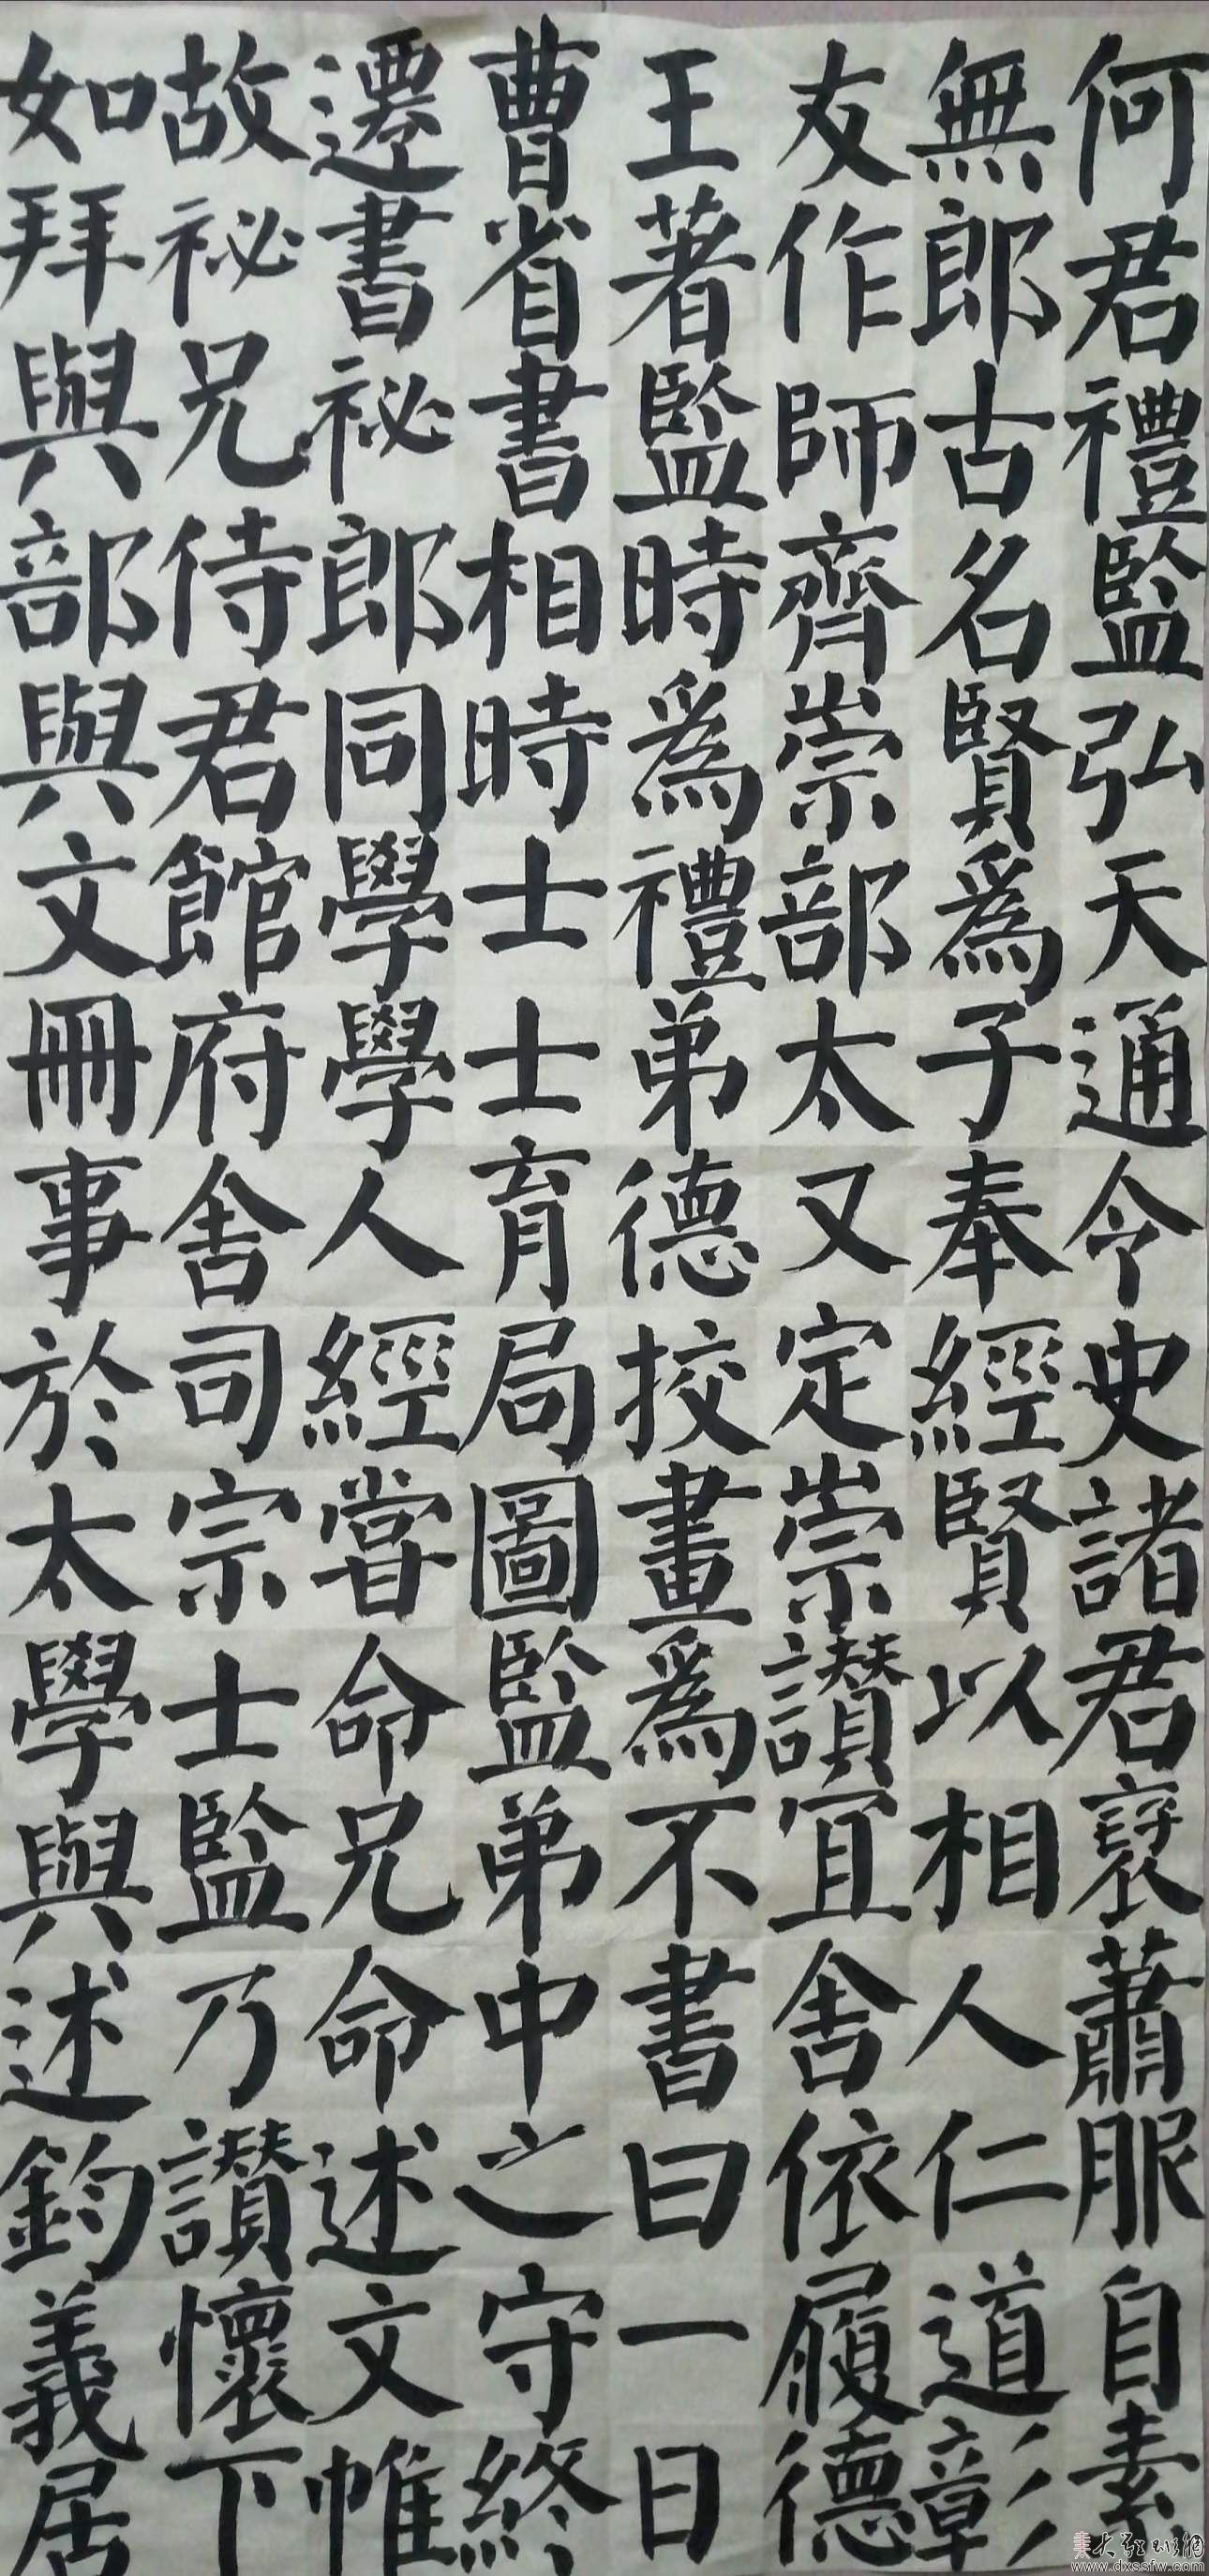 何君禮監弘天通令史諸君裦蕭服自素
無郎古名賢為子奉經賢以相人仁道彰
友作師齊崇部太又定崇讃宜舍依履德
王著監時為禮弟德挍畫為不書曰一日
曹省書相時士士育局圖監弟中之守終
遷書祕郎同學學人經甞命兄命述文帷
故祕兄侍君館府舍司宗士監乃讃懷下
如拜與部與文冊事於太學與述鈞義居
www.dxssfw.com